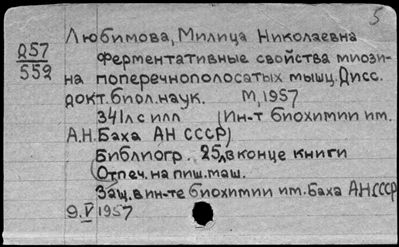 5
Д57
552
Любимова, Милица Николаевна
Ферментативные свойства миози-
на поперечнополосатых мышц. Дисс.
докт. биол. наук. М, 1957
341л с илл (Ин-т биохимии им.
А.Н. Баха АН СССР)
Библиогр. 25л в конце книги
Отпеч. на пиш. маш.
Защ. в ин-те биохимии им. Баха АН СССР
9.V 1957